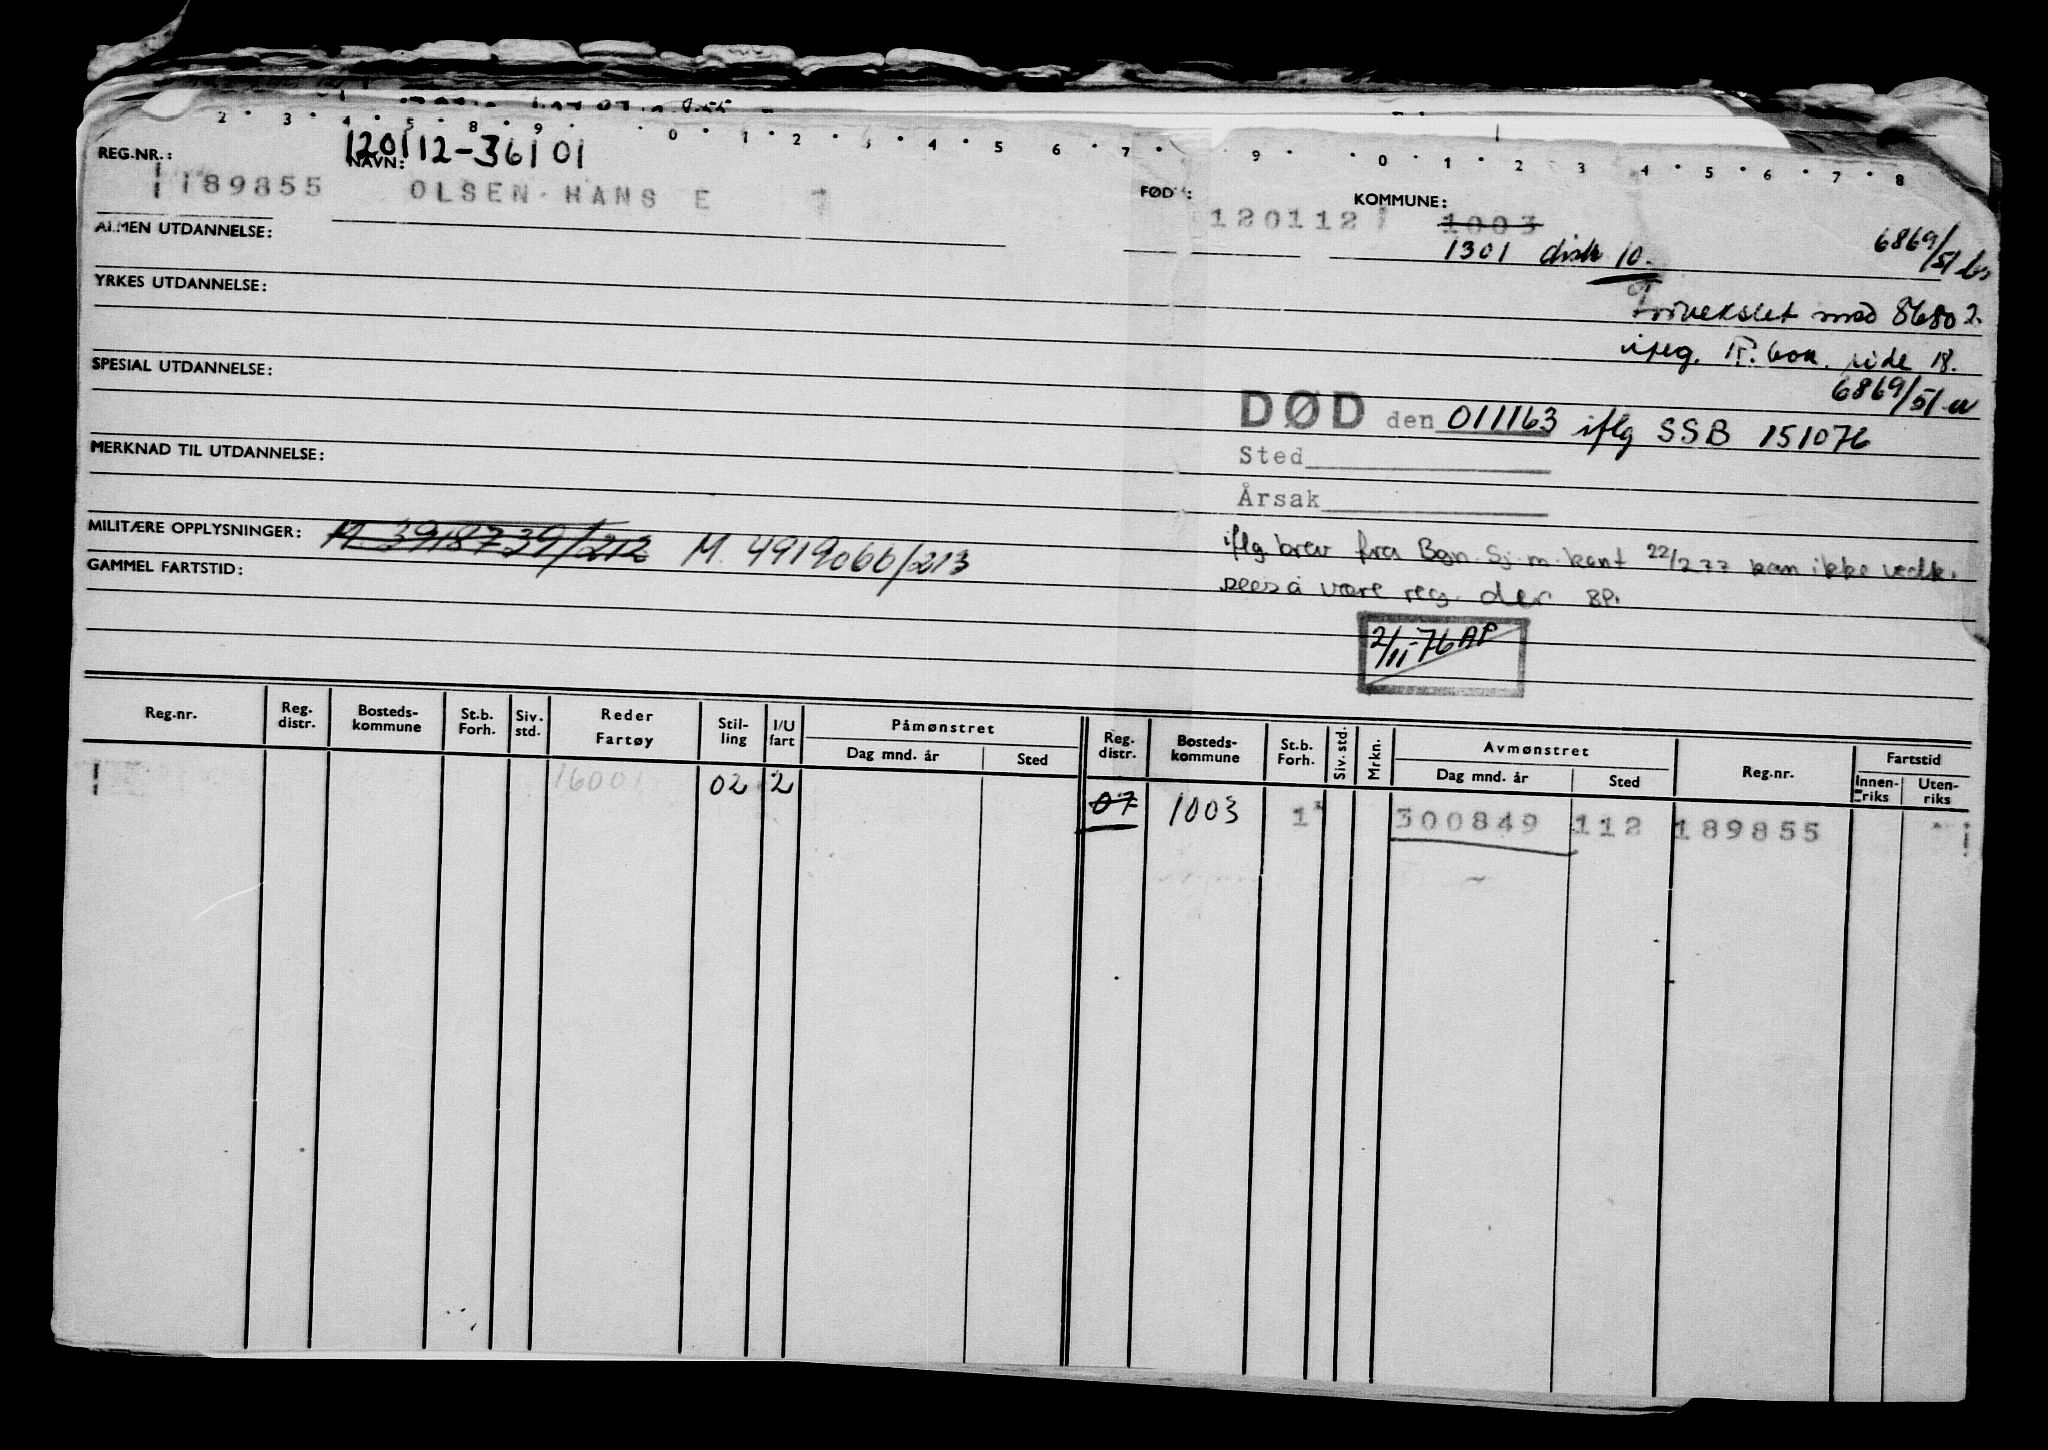 2 · 3 · 4 · 5 · 8 · 9 · 0 · 1 · 2 · 3 · 4 · 5 6 · 7 · 9 · 0 · 1 · 2 3 · 4 · 5 · 6 · 7 · 8
120112-36101
REG.NR.: NAVN: FØDT: KOMMUNE:
189855 OLSEN HANS E 120112 1003
ALMEN UTDANNELSE: 1301 disk 10. 6869/51
YRKES UTDANNELSE:
Forvekslet med 86802.
side 18.
SPESIAL UTDANNELSE: 6869/51
DØD den 011163 iflg SSB 151076
MERKNAD TIL UTDANNELSE: Sted
Årsak
MILITÆRE OPPLYSNINGER: M. 3918739/212 M. 4919066/213
iflg brev fra Bgn. Sj.m.kont 22/2 77 kan ikke vedk.
GAMMEL FARTSTID: sees å være reg. der
2/11-76 AP
Reg.nr. Reg. distr. Bosteds-kommune St.b. Forh. Siv. std. Reder Fartøy Stil-ling I/U fart Påmønstret Dag mnd. år Sted Reg. distr. Bosteds-kommune St.b. Forh. Siv. std. Mrkn. Avmønstret Dag mnd. år Sted Reg.nr. Fartstid Innen-riks Uten-riks
16001 02 2 07 1003 1 300849 112 189855